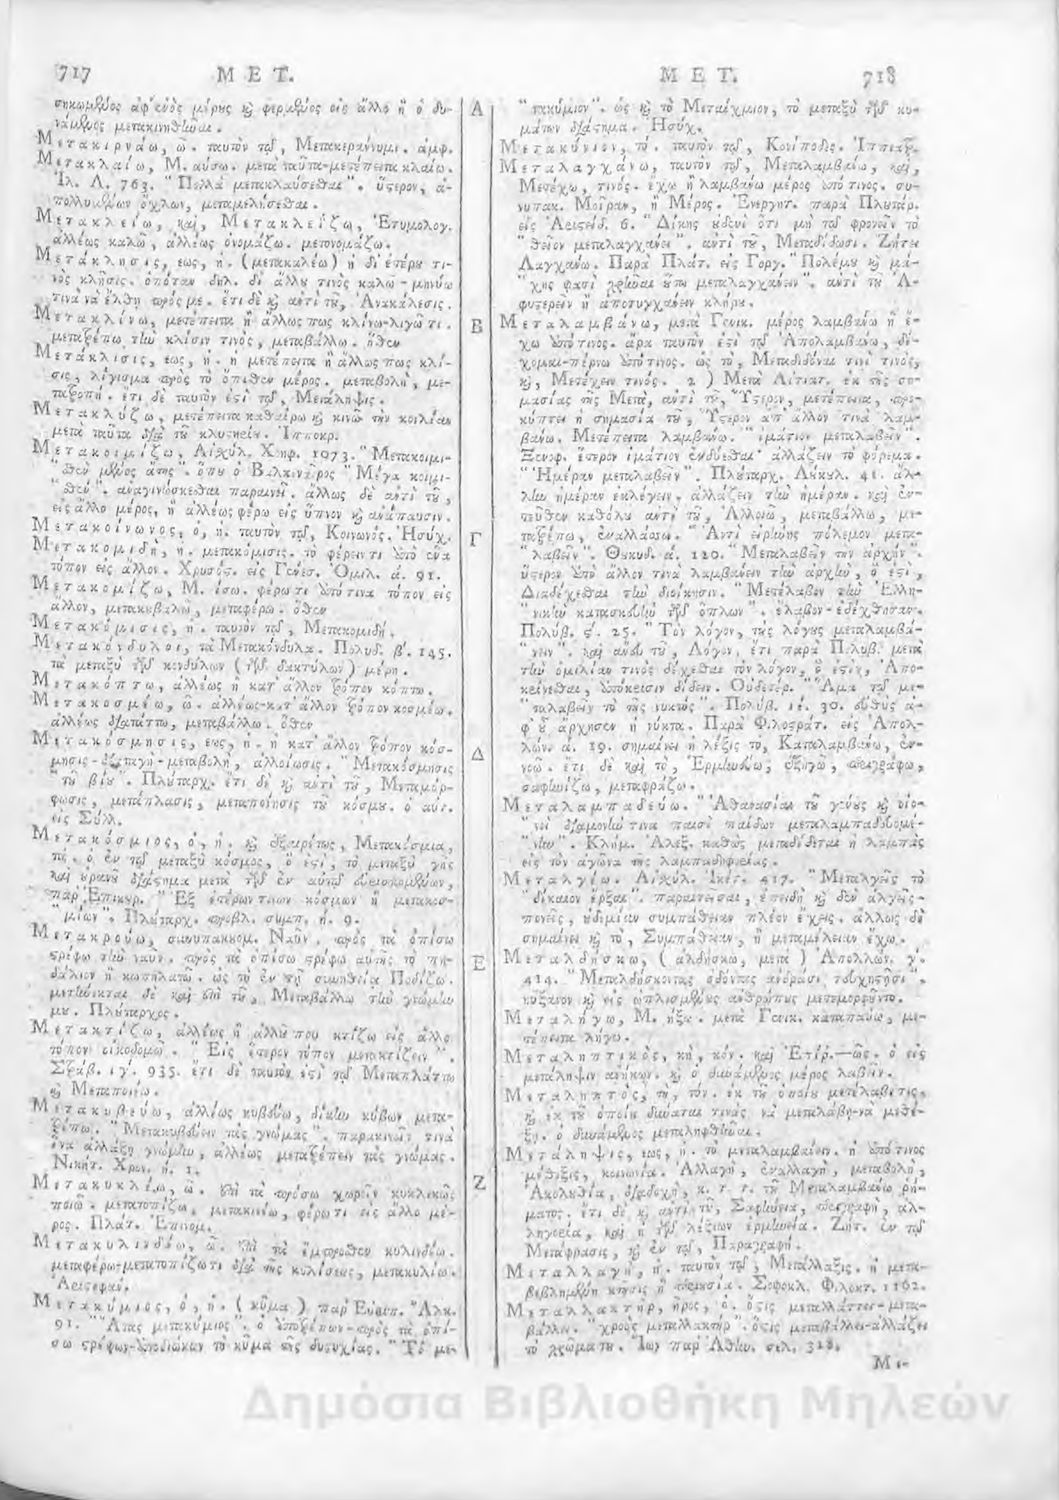 717 ΜΕΤ.
σηκωμένος ἀφ' ἑνὸς μέρους καὶ φερμένος εἰς ἄλλο ἢ ὁ δυ-
νάμενος μετακινηθῆναι.
Μετακιρνάω, ῶ. ταυτὸν τῷ, Μετακεράννυμι. ἀμφ.
Μετακλαίω, Μ. αύσω. μετὰ ταῦτα-μετέπειτα κλαίω.
Ἰλ. Λ. 763. "Πολλὰ μετακλαύσεσθαι". ὕστερον, ἀ-
πολλυμένων ὄχλων, μεταμελήσεσθαι.
Μετακλείω, καὶ, Μετακλείζω, Ἐτυμολογ.
ἀλλέως καλῶ, ἀλλέως ὀνομάζω. μετονομάζω.
Μετάκλησις, εως, ἡ. (μετακαλέω) ἡ δι' ἑτέρου τι-
νὸς κλῆσις. ὁπόταν δηλ. δι' ἄλλου τινὸς καλῶ-μηνύω
τινὰ νὰ ἔλθῃ πρός με. ἔτι δὲ καὶ ἀντὶ τοῦ, Ἀνακάλεσις.
Μετακλίνω, μετέπειτα ἢ ἄλλως πως κλίνω-λιγῶ τι.
μετατρέπω τὴν κλίσιν τινὸς, μεταβάλλω. ὅθεν
Μετάκλισις, εως, ἡ. ἡ μετέπειτα ἢ ἄλλως πως κλί-
σις, λίγισμα πρὸς τὸ ὄπιθεν μέρος. μεταβολὴ, με-
τατροπή. ἔτι δὲ ταυτὸν ἐστὶ τῷ, Μετάληψις.
Μετακλύζω, μετέπειτα καθαίρω καὶ κινῶ τὴν κοιλίαν
μετὰ ταῦτα διὰ τοῦ κλυστηρίου. Ἱπποκρ.
Μετακοιμίζω, Αἰσχύλ. Χοηφ. 1073. "Μετακοιμι-
"σθὲν μένος ἄτης". ὅπου ὁ Βαλκινιέρος "Μέγα κοιμι-
"σθὲν". ἀναγινώσκεσθαι παραινεῖ. ἄλλως δὲ ἀντὶ τοῦ,
εἰς ἄλλο μέρος, ἢ ἀλλέως φέρω εἰς ὕπνον καὶ ἀνάπαυσιν.
Μετακοίνωνος, ὁ, ἡ. ταυτὸν τῷ, Κοινωνός. Ἡσύχ.
Μετακομιδὴ, ἡ. μετακόμισις. τὸ φέρειν τι ἀπὸ ἕνα
τόπον εἰς ἄλλον. Χρυσός. εἰς Γένεσ. Ὁμιλ. ά. 91.
Μετακομίζω, Μ. ίσω. φέρω τι ἀπό τινα τόπον εἰς
ἄλλον, μετακουβαλῶ, μεταφέρω. ὅθεν
Μετακόμισις, ἡ. ταυτὸν τῷ, Μετακομιδή.
Μετακόνδυλοι, τὰ Μετακόνδυλα. Πολυδ. β'. 145.
τὰ μεταξὺ τῶν κονδύλων (τῶν δακτύλων) μέρη.
Μετακόπτω, ἀλλέως ἢ κατ' ἄλλον τρόπον κόπτω.
Μετακοσμέω, ῶ. ἀλλέως-κατ' ἄλλον τρόπον κοσμέω.
ἀλλέως διατάττω, μεταβάλλω. ὅθεν
Μετακόσμησις, εως, ἡ. ἡ κατ' ἄλλον τρόπον κόσ-
μησις-διαταγὴ-μεταβολὴ, ἀλλοίωσις. "Μετακόσμησις
"τοῦ βίου". Πλούταρχ. ἔτι δὲ καὶ ἀντὶ τοῦ, Μεταμόρ-
φωσις, μετάπλασις, μεταποίησις τοῦ κόσμου. ὁ αὐτ.
εἰς Σύλλ.
Μετακόσμιος, ὁ, ἡ. καὶ ἐξαιρέτως, Μετακόσμια,
τά. ὁ ἐν τῷ μεταξὺ κόσμος, ὅ ἐστι, τὸ μεταξὺ γῆς
καὶ οὐρανοῦ διάστημα μετὰ τῶν ἐν αὐτῷ εὑρισκομένων,
παρ' Ἐπικουρ. "Ἐξ ἑτέρων τινῶν κόσμων ἢ μετακοσ-
"μίων". Πλούταρχ. προβλ. συμπ. ή. 9.
Μετακρούω, συνυπακουομ. Ναῦν. πρὸς τὰ ὀπίσω
στρέφω τὴν ναῦν. πρὸς τὰ ὀπίσω στρέφω αὐτῆς τὸ πη-
δάλιον ἢ κωπηλατῶ. ὡς τὸ ἐν τῇ συνηθείᾳ Ποδίζω.
μετῆκται δὲ καὶ ἐπὶ τοῦ, Μεταβάλλω τὴν γνώμην
μου. Πλούταρχος.
Μετακτίζω, ἀλλέως ἢ ἀλλοῦ που κτίζω εἰς ἄλλο
τόπον οἰκοδομῶ. "Εἰς ἕτερον τόπον μετακτίζειν".
Στράβ. ιγ'. 935. ἔτι δὲ ταυτὸν ἐστὶ τῷ Μεταπλάττω
καὶ Μεταποιέω.
Μετακυβεύω, ἀλλέως κυβεύω, δίκην κύβων μετα-
τρέπω. "Μετακυβεύειν τὰς γνώμας". παρακινεῖν τινὰ
ἵνα ἀλλάξῃ γνώμην, ἀλλέως μετατρέπειν τὰς γνώμας.
Νικήτ. Χρον. ή. 1.
Μετακυκλέω, ῶ. ἐπὶ τὰ πρόσω χωρεῖν κυκλικῶς
ποιῶ. μετατοπίζω, μετακινέω, φέρω τι εἰς ἄλλο μέ-
ρος. Πλάτ. Ἐπινομ.
Μετακυλινδέω, ῶ. ἐπὶ τὰ ἔμπροσθεν κυλινδέω.
μεταφέρω-μετατοπίζω τι διὰ τῆς κυλίσεως, μετακυλίω.
Ἀριστοφάν.
Μετακύμιος, ὁ, ἡ. (κῦμα) παρ' Εὐριπ. Ἄλκ.
91. "Ἄτας μετακύμιος". ὁ ἀποτρέπων-πρὸς τὰ ὀπί-
σω στρέφων-ἀποδιώκων τὸ κῦμα τῆς δυστυχίας. "Τὸ με-
Α
Β
Γ
Δ
Ε
Ζ
ΜΕΤ. 718
"τακύμιον". ὡς καὶ τὸ Μεταίχμιον, τὸ μεταξὺ τῶν κυ-
μάτων διάστημα. Ἡσύχ.
Μετακύνιον, τό. ταυτὸν τῷ, Κονίποδες. Ἱππιατρ.
Μεταλαγχάνω, ταυτὸν τῷ, Μεταλαμβάνω, καὶ,
Μετέχω, τινός. ἔχω ἢ λαμβάνω μέρος ἀπό τινος. συ-
νυπακ. Μοῖραν, ἢ Μέρος. Ἐνεργητ. παρὰ Πλουτάρ.
εἰς Ἀριστείδ. 6. "Δίκης οὐδενὶ ὅτι μὴ τῷ φρονεῖν τὸ
"θεῖον μεταλαγχάνει". ἀντὶ τοῦ, Μεταδίδωσι. Ζήτει
Λαγχάνω. Παρὰ Πλάτ. εἰς Γοργ. "Πολέμου καὶ μά-
"χης φασὶ χρῆναι οὕτω μεταλαγχάνειν". ἀντὶ τοῦ Ἀ-
φυστερεῖν ἢ ἀποτυγχάνειν κλήρου.
Μεταλαμβάνω, μετὰ Γενικ. μέρος λαμβάνω ἢ ἔ-
χω ἀπό τινος. ἄρα ταυτὸν ἐστὶ τῷ Ἀπολαμβάνω, δέ-
χομαι-πέρνω ἀπό τινος. ὡς τὸ, Μεταδιδόναι τινὶ τινὸς,
καὶ, Μετέχειν τινός. 2) Μετὰ Αἰτιατ. ἐκ τῆς ση-
μασίας τῆς Μετὰ, ἀντὶ τοῦ, Ὕστερον, μετέπειτα, προ-
κύπτει ἡ σημασία τοῦ, Ὕστερον ἀπ' ἄλλον τινὰ λαμ-
βάνω. Μετέπειτα λαμβάνω. "ἱμάτιον μεταλαβεῖν".
Ξενοφ. ἕτερον ἱμάτιον ἐνδύεσθαι ἀλλάζειν τὸ φόρεμα.
"Ἡμέραν μεταλαβεῖν". Πλούταρχ. Λύκουλ. 41. ἄλ-
λην ἡμέραν ἐκλέγειν. ἀλλάζειν τὴν ἡμέραν. καὶ ἐν-
τεῦθεν καθόλου ἀντὶ τοῦ, Ἀλλοιῶ, μεταβάλλω, με-
τατρέπω, ἐναλλάσσω. "Ἀντὶ εἰρήνης πόλεμον μετα-
"λαβεῖν". Θουκυδ. ά. 120. "Μεταλαβεῖν τὴν ἀρχὴν".
ὕστερον ἀπὸ ἄλλον τινὰ λαμβάνειν τὴν ἀρχὴν, ὅ ἐστι,
Διαδέχεσθαι τὴν διοίκησιν. "Μετέλαβον τὴν Ἑλλη-
"νικὴν κατασκευὴν τῶν ὅπλων". ἔλαβον-ἐδέχθησαν.
Πολύβ. ς'. 25. "Τὸν λόγον, τοὺς λόγους μεταλαμβά-
"νειν". καὶ ἄνευ τοῦ, Λόγον, ἔτι παρὰ Πολυβ. μετὰ
τὴν ὁμιλίαν τινὸς δέχεσθαι τὸν λόγον, ὅ ἐστιν, Ἀπο-
κρίνεσθαι, ἀπόκρισιν δίδειν. Οὐδετέρ. "Ἅμα τῷ με-
"ταλαβεῖν τὸ τῆς νυκτός". Πολύβ. ιέ. 30. εὐθὺς ἀ-
φ' οὗ ἄρχησεν ἡ νύκτα. Παρὰ Φιλοστράτ. εἰς Ἀπολ-
λών. ά. 19. σημαίνει ἡ λέξις τὸ, Καταλαμβάνω, ἐν-
νοῶ. ἔτι δὲ καὶ τὸ, Ἑρμηνεύω, ἐξηγῶ, περιγράφω,
σαφηνίζω, μεταφράζω.
Μεταλαμπαδεύω. "Ἀθανασίαν τοῦ γένους καὶ οἱο-
"νεὶ διαμονήν τινα παισὶ παίδων μεταλαμπαδευομέ-
"νην". Κλήμ. Ἀλεξ. καθὼς μεταδίδεται ἡ λαμπὰς
εἰς τὸν ἀγῶνα τῆς λαμπαδηφορίας.
Μεταλγέω. Αἰσχύλ. Ἱκέτ. 417. "Μεταλγεῖς τὸ
"δίκαιον ἔρξαι". παραιτεῖσαι, ἐπειδὴ καὶ δὲν ἀλγεῖς-
πονεῖς, οὐδεμίαν συμπάθειαν πλέον ἔχεις. ἄλλως δὲ
σημαίνει καὶ τὸ, Συμπάθειαν, ἢ μεταμέλειαν ἔχω.
Μεταλδήσκω, (ἀλδήσκω, μετὰ) Ἀπολλών. γ'.
414. "Μεταλδήσκοντας ὀδόντας ἀνδράσι τευχηστῆσι".
ηὔξανον καὶ εἰς ὡπλισμένους ἀνθρώπους μετεμορφοῦντο.
Μεταλήγω, Μ. ήξω. μετὰ Γενικ. καταπαύω, με-
τέπειτα λήγω.
Μεταληπτικὸς, κὴ, κόν. καὶ Ἐπίρ.—ῶς. ὁ εἰς
μετάληψιν ἀνήκων. καὶ ὁ δυνάμενος μέρος λαβεῖν.
Μεταληπτὸς, τὴ, τόν. ἐκ τοῦ ὁποίου μετέλαβέ τις,
καὶ ἐκ τοῦ ὁποίου δύναται τινὰς νὰ μεταλάβῃ-νὰ μεθέ-
ξῃ. ὁ δυνάμενος μεταληφθῆναι.
Μετάληψις, εως, ἡ. τὸ μεταλαμβάνειν. ἡ ἀπό τινος
μέθεξις, κοινωνία. Ἀλλαγὴ, ἐναλλαγὴ, μεταβολὴ,
Ἀκολουθία, διαδοχὴ, κ. τ. τ. τοῦ Μεταλαμβάνω ῥή-
ματος. ἔτι δὲ καὶ ἀντὶ τοῦ, Σαφήνεια, περιγραφὴ, ἀλ-
ληγορία, καὶ ἡ τῶν λέξεων ἑρμηνεία. Ζήτ. ἐν τῷ
Μετάφρασις, καὶ ἐν τῷ, Παραγραφή.
Μεταλλαγὴ, ἡ. ταυτὸν τῷ, Μετάλλαξις. ἡ μετα-
βεβλημένη κτῆσις ἢ περιουσία. Σοφοκλ. Φιλοκτ. 1162.
Μεταλλακτὴρ, ῆρος, ὁ. ὅστις μεταλλάττει-μετα-
βάλλει. "χροὸς μεταλλακτὴρ". ὅστις μεταβάλλει-ἀλλάζει
τὸ χρῶμά του. Ἴων παρ' Ἀθήν. σελ. 318.
Με-
Δημόσια Βιβλιοθήκη Μηλεών